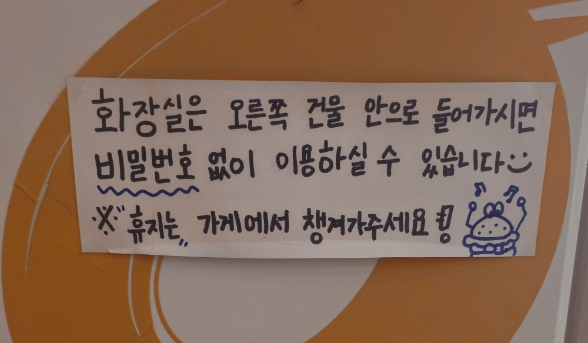 화장실은 오른쪽 건물 안으로 들어가시면
비밀번호 없이 이용하실 수 있습니다
※ "휴지는" 가게에서 챙겨가주세요!